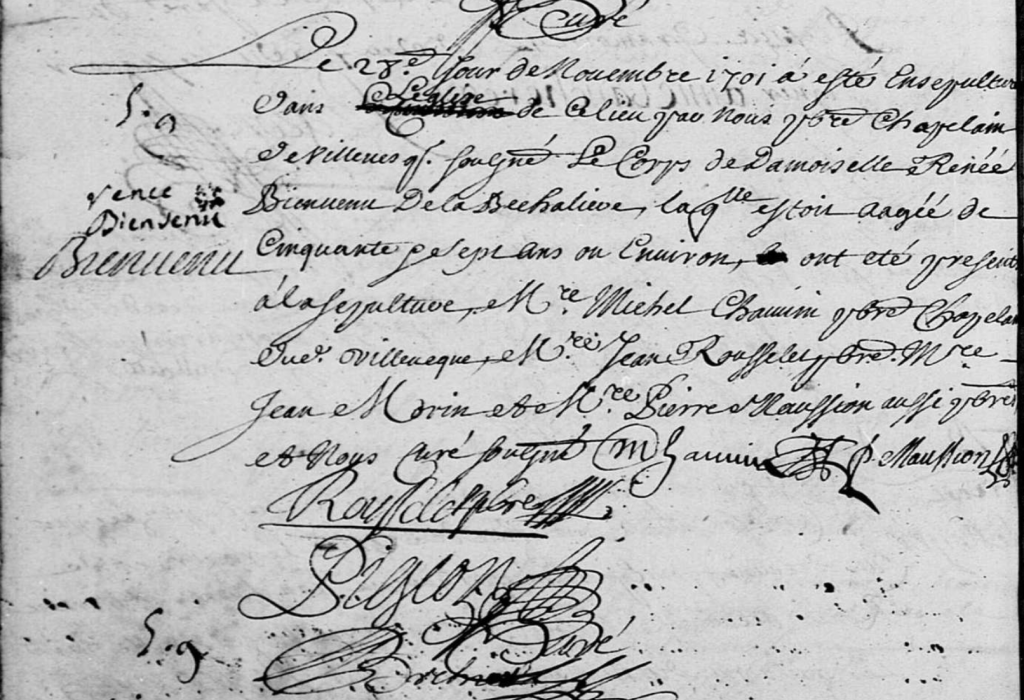 Curé
Le 28.e Jour de Novembre 1701 á esté Ensepulturé
S. 9
dans L'eglise de Ce lieu par Nous pbre Chapelain
de Villeves q. sousgné Le Corps de Damoiselle Renée
renee
Bienvenu
Bienvenu De la Bechalieve, laqlle estoit aagée de
Bienvenu
Cinquante & sept ans ou Environ, ont eté present
á la sepulture, Mre. Michel Chauvin pbre Chapelain
dud. Villeveque, Mre. Jean Rousselet, pbre. Mre
Jean Morin et Mre. Pierre Maussion aussi pbres
et Nous curé sousigné M Chauvin P. Maussion
Rousselet pbre
Pigeon
Curé
S. 9